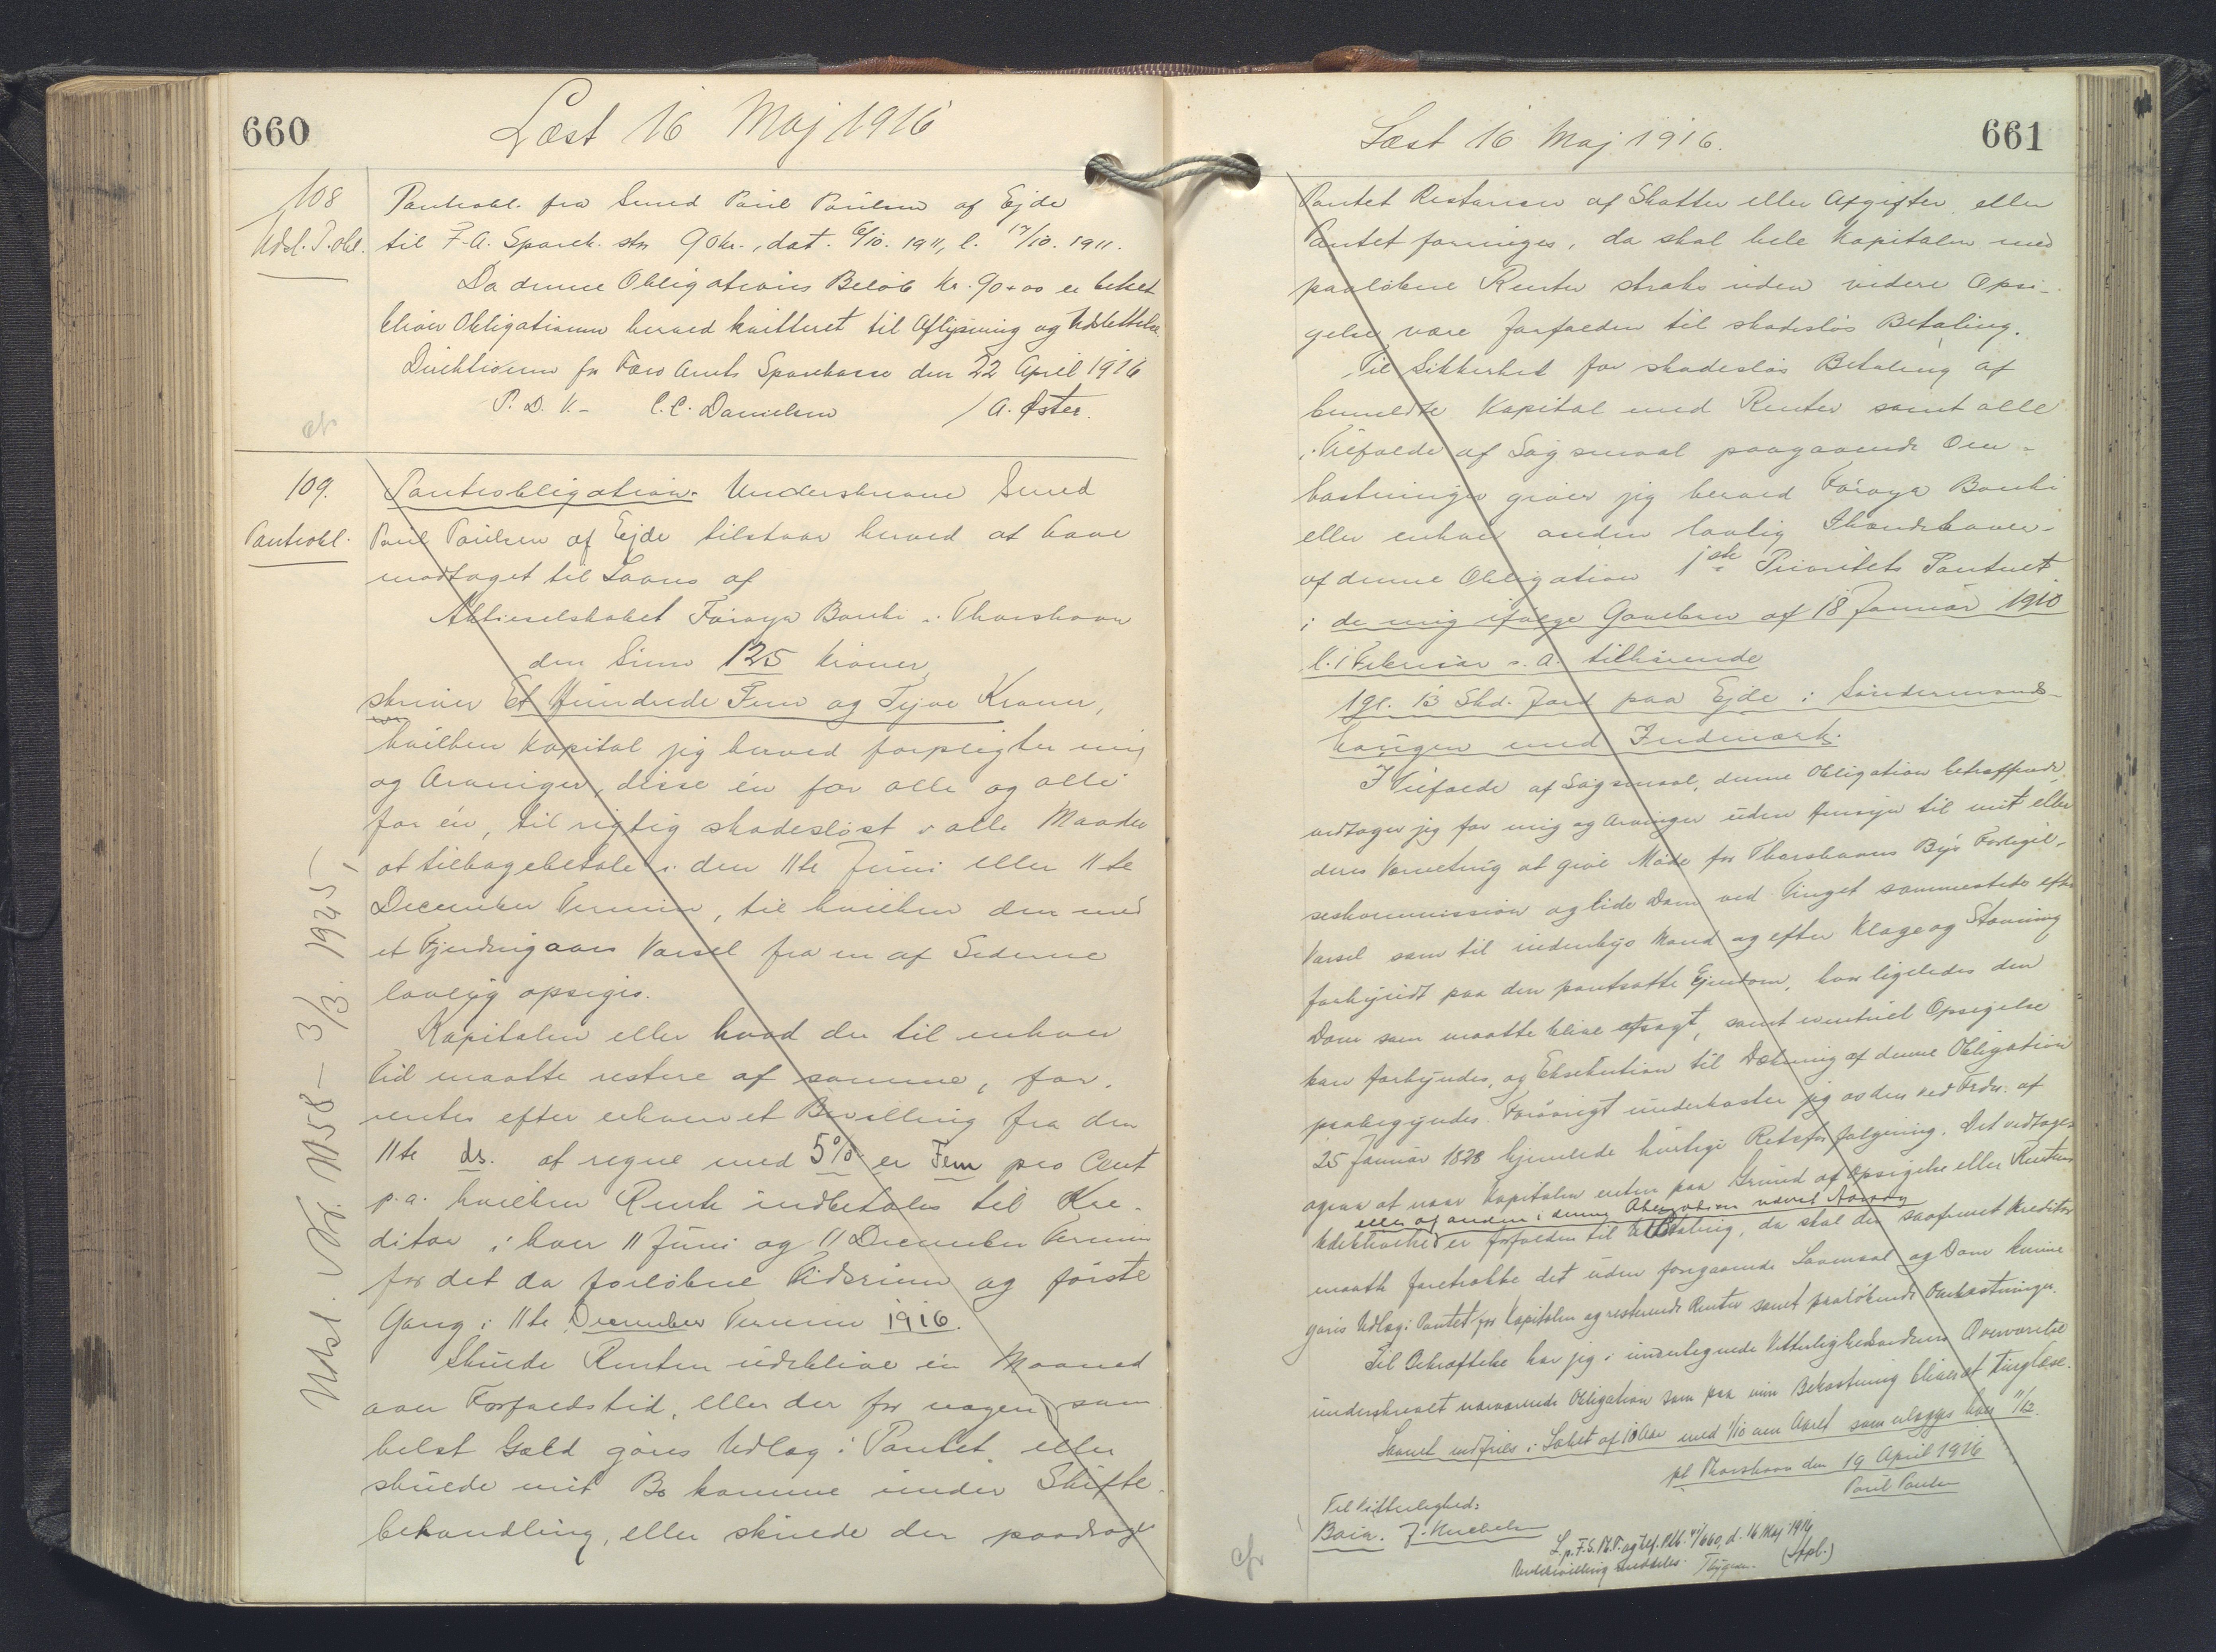 660
Læst 16 Maj 1916
108
Udsl. P.obl.
Panteobl. fra Smed Poul Poulsen af Ejde
til F. A. Sparek. stor 90 Kr., dat. 6/10. 1911, l. 17/10. 1911.
Da denne Obligations Beløb Kr. 90 + 00 er betalt
bliver Obligationen herved kvitteret til Aflysning og Udslettelse.
Direktionen for Færø Amts Sparekasse den 22 April 1916
P. D. V. - C. C. Danielsen / A. Øster.
109.
Panteobl.
Panteobligation. Underskrevne Smed
Poul Poulsen af Ejde tilstaar herved at have
modtaget til Laans af
Aktieselskabet Føroya Banki i Thorshavn
den Sum 125 Kroner
skriver Et Hundrede Fem og Tyve Kroner,
hvilken Kapital jeg herved forpligter mig
og Arvinger, disse én for alle og alle
for én, til rigtig skadesløst i alle Maader
at tilbagebetale i den 11te Juni eller 11te
December Termin, til hvilken den med
et Fjerdingaars Varsel fra en af Siderne
lovlig opsiges.
Kapitalen eller hvad der til enhver
Tid maatte restere af samme, for-
rentes efter erhvervet Bevilling fra den
11te ds. at regne med 5% er Fem pro Cent
p.a. hvilken Rente indbetales til Kre-
ditor i hver 11 Juni og 11 December Termin
for det da forløbne Tidsrum og første
Gang i 11te December Termin 1916.
Skulde Renten udeblive én Maaned
over Forfaldstid, eller der for nogen som
helst Gæld gøres Udlæg i Pantet eller
skulde mit Bo komme under Skifte-
behandling, eller skulde der paadrage
Udsl. Nr. M58 - 3/3. 1925
661
Læst 16 Maj 1916.
Pantet Restancer af Skatter eller Afgifter eller
Pantet forringes, da skal hele Kapitalen med
paaløbne Renter straks uden videre Opsi-
gelse være forfalden til skadesløs Betaling.
Til Sikkerhed for skadesløs Betaling af
bemeldte Kapital med Renter samt alle
i Tilfælde af Søgsmaal paagaaende Om-
kostninger giver jeg herved Føroya Banki
eller enhver anden lovlig Ihændehaver
af denne Obligation 1ste Prioritets Panteret
i de mig ifølge Gavebrev af 18 Januar 1910
l. 1 Februar s. A. tilhørende
1 gl. 13 Skd. Jord paa Ejde i Søndermands-
haugen med Indmark.
I Tilfælde af Søgsmaal, denne Obligation betræffende,
vedtager jeg for mig og Arvinger uden Hensyn til mit eller
deres Værneting at give Møde for Thorshavns Bys Forligel-
seskommission og lide Dom ved Tinget sammesteds efter
Varsel som til indenbys Mand og efter Klage og Stævning
forkyndt paa den pantsatte Ejendom, hvor ligeledes den
Dom som maatte blive afsagt, samt eventuel Opsigelse
kan forkyndes, og Eksekution til Dækning af denne Obligation
paabegyndes. Forøvrigt underkaster jeg os den ved Frdn. af
25 Januar 1828 hjemlede hurtige Retsforfølgning. Det vedtages
ogsaa at naar Kapitalen enten paa Grund af Opsigelse eller Rentens
eller af anden i denne Obligation nævnt Aarsag
Udeblivelse er forfalden til Udbetaling, da skal der saafremt Kreditor
maatte foretrække det uden foregaaende Lovmaal og Dom kunne
gøres Udlæg i Pantet for Kapitalen og resterende Renter samt paaløbende Omkostninger.
Til Bekræftelse har jeg i undertegnede Vitterlighedsvidners Overværelse
underskrevet nærværende Obligation som paa min Bekostning bliver at tinglæse.
Laanet indfries i Løbet af 10 Aar med 1/10 om Aaret som erlægges hver 11/12.
pt Thorshavn den 19 April 1916
Poul Poulsen
Til Vitterlighed:
L. p. F. S. M. T. og ref. Pbl. 41/660, d. 16 Maj 1916
(Stpl.)